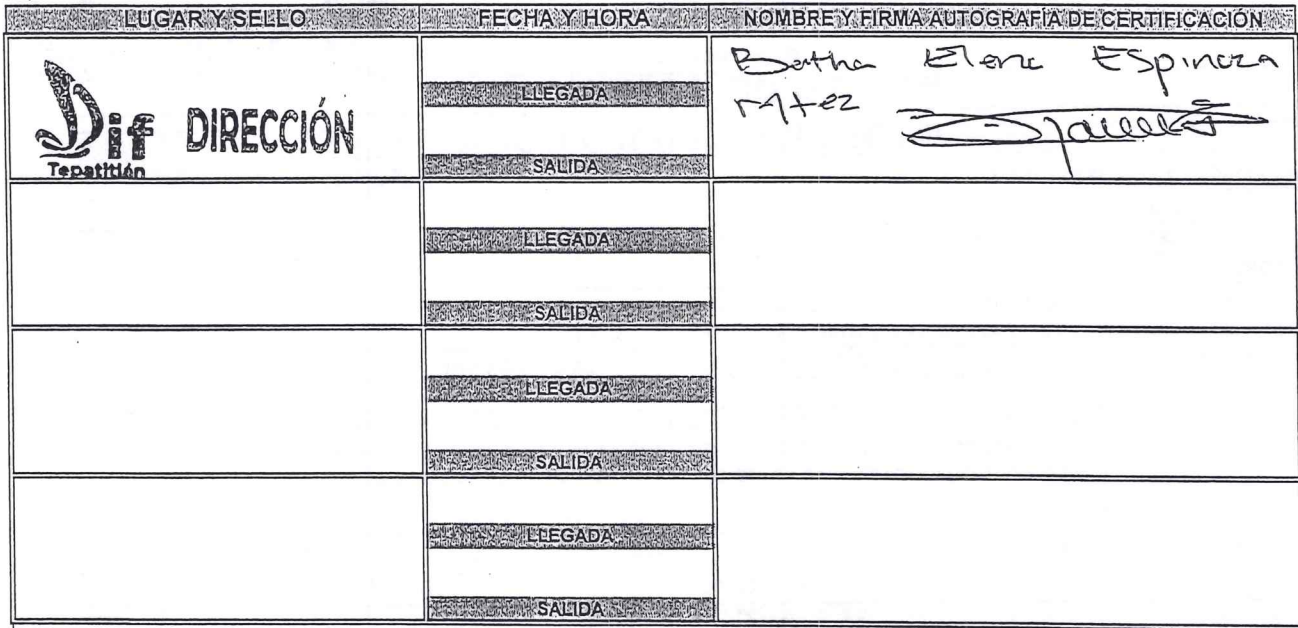 LUGAR Y SELLO FECHA Y HORA NOMBRE Y FIRMA AUTOGRAFÍA DE CERTIFICACIÓN
Dif DIRECCIÓN
Tepatitlán
LLEGADA
SALIDA
Bertha Elena Espinoza
Mtez
LLEGADA
SALIDA
LLEGADA
SALIDA
LLEGADA
SALIDA